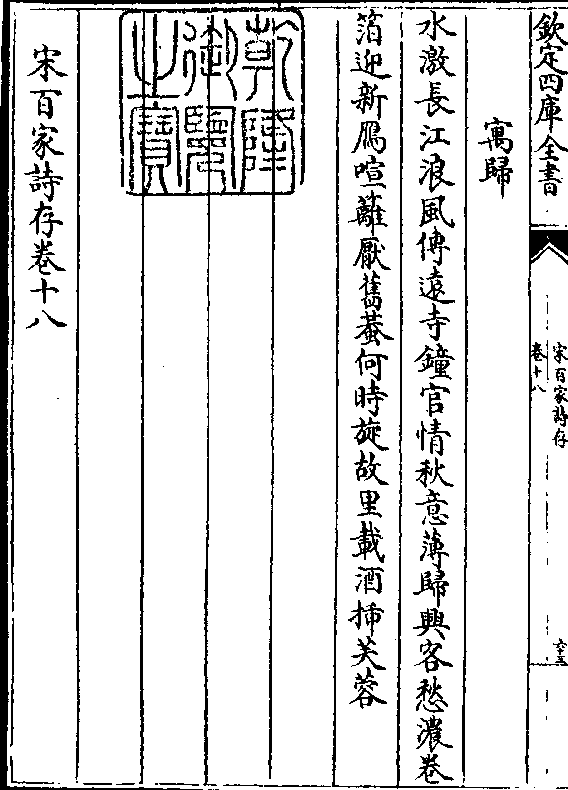 欽定四庫全書
宋百家詩存
卷十八
寓歸
水激長江浪風傳遠寺鐘官情秋意薄歸興客愁濃卷
箔迎新鴈喧蘺厭舊蛬何時旋故里載酒挿芙蓉
乾隆
御覽
之寶
宋百家詩存卷十八